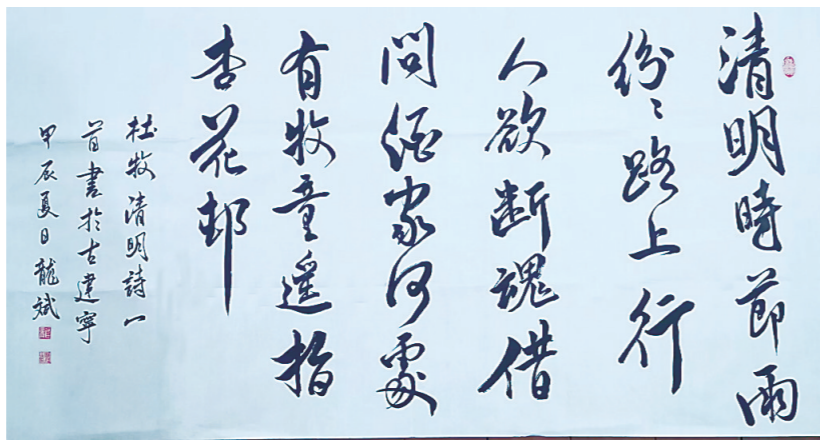 清明時節雨
紛〻路上行
人欲斷魂借
問酒家何處
有牧童遥指
杏花邨
杜牧清明詩一
首書於古建寧
甲辰夏日龍斌